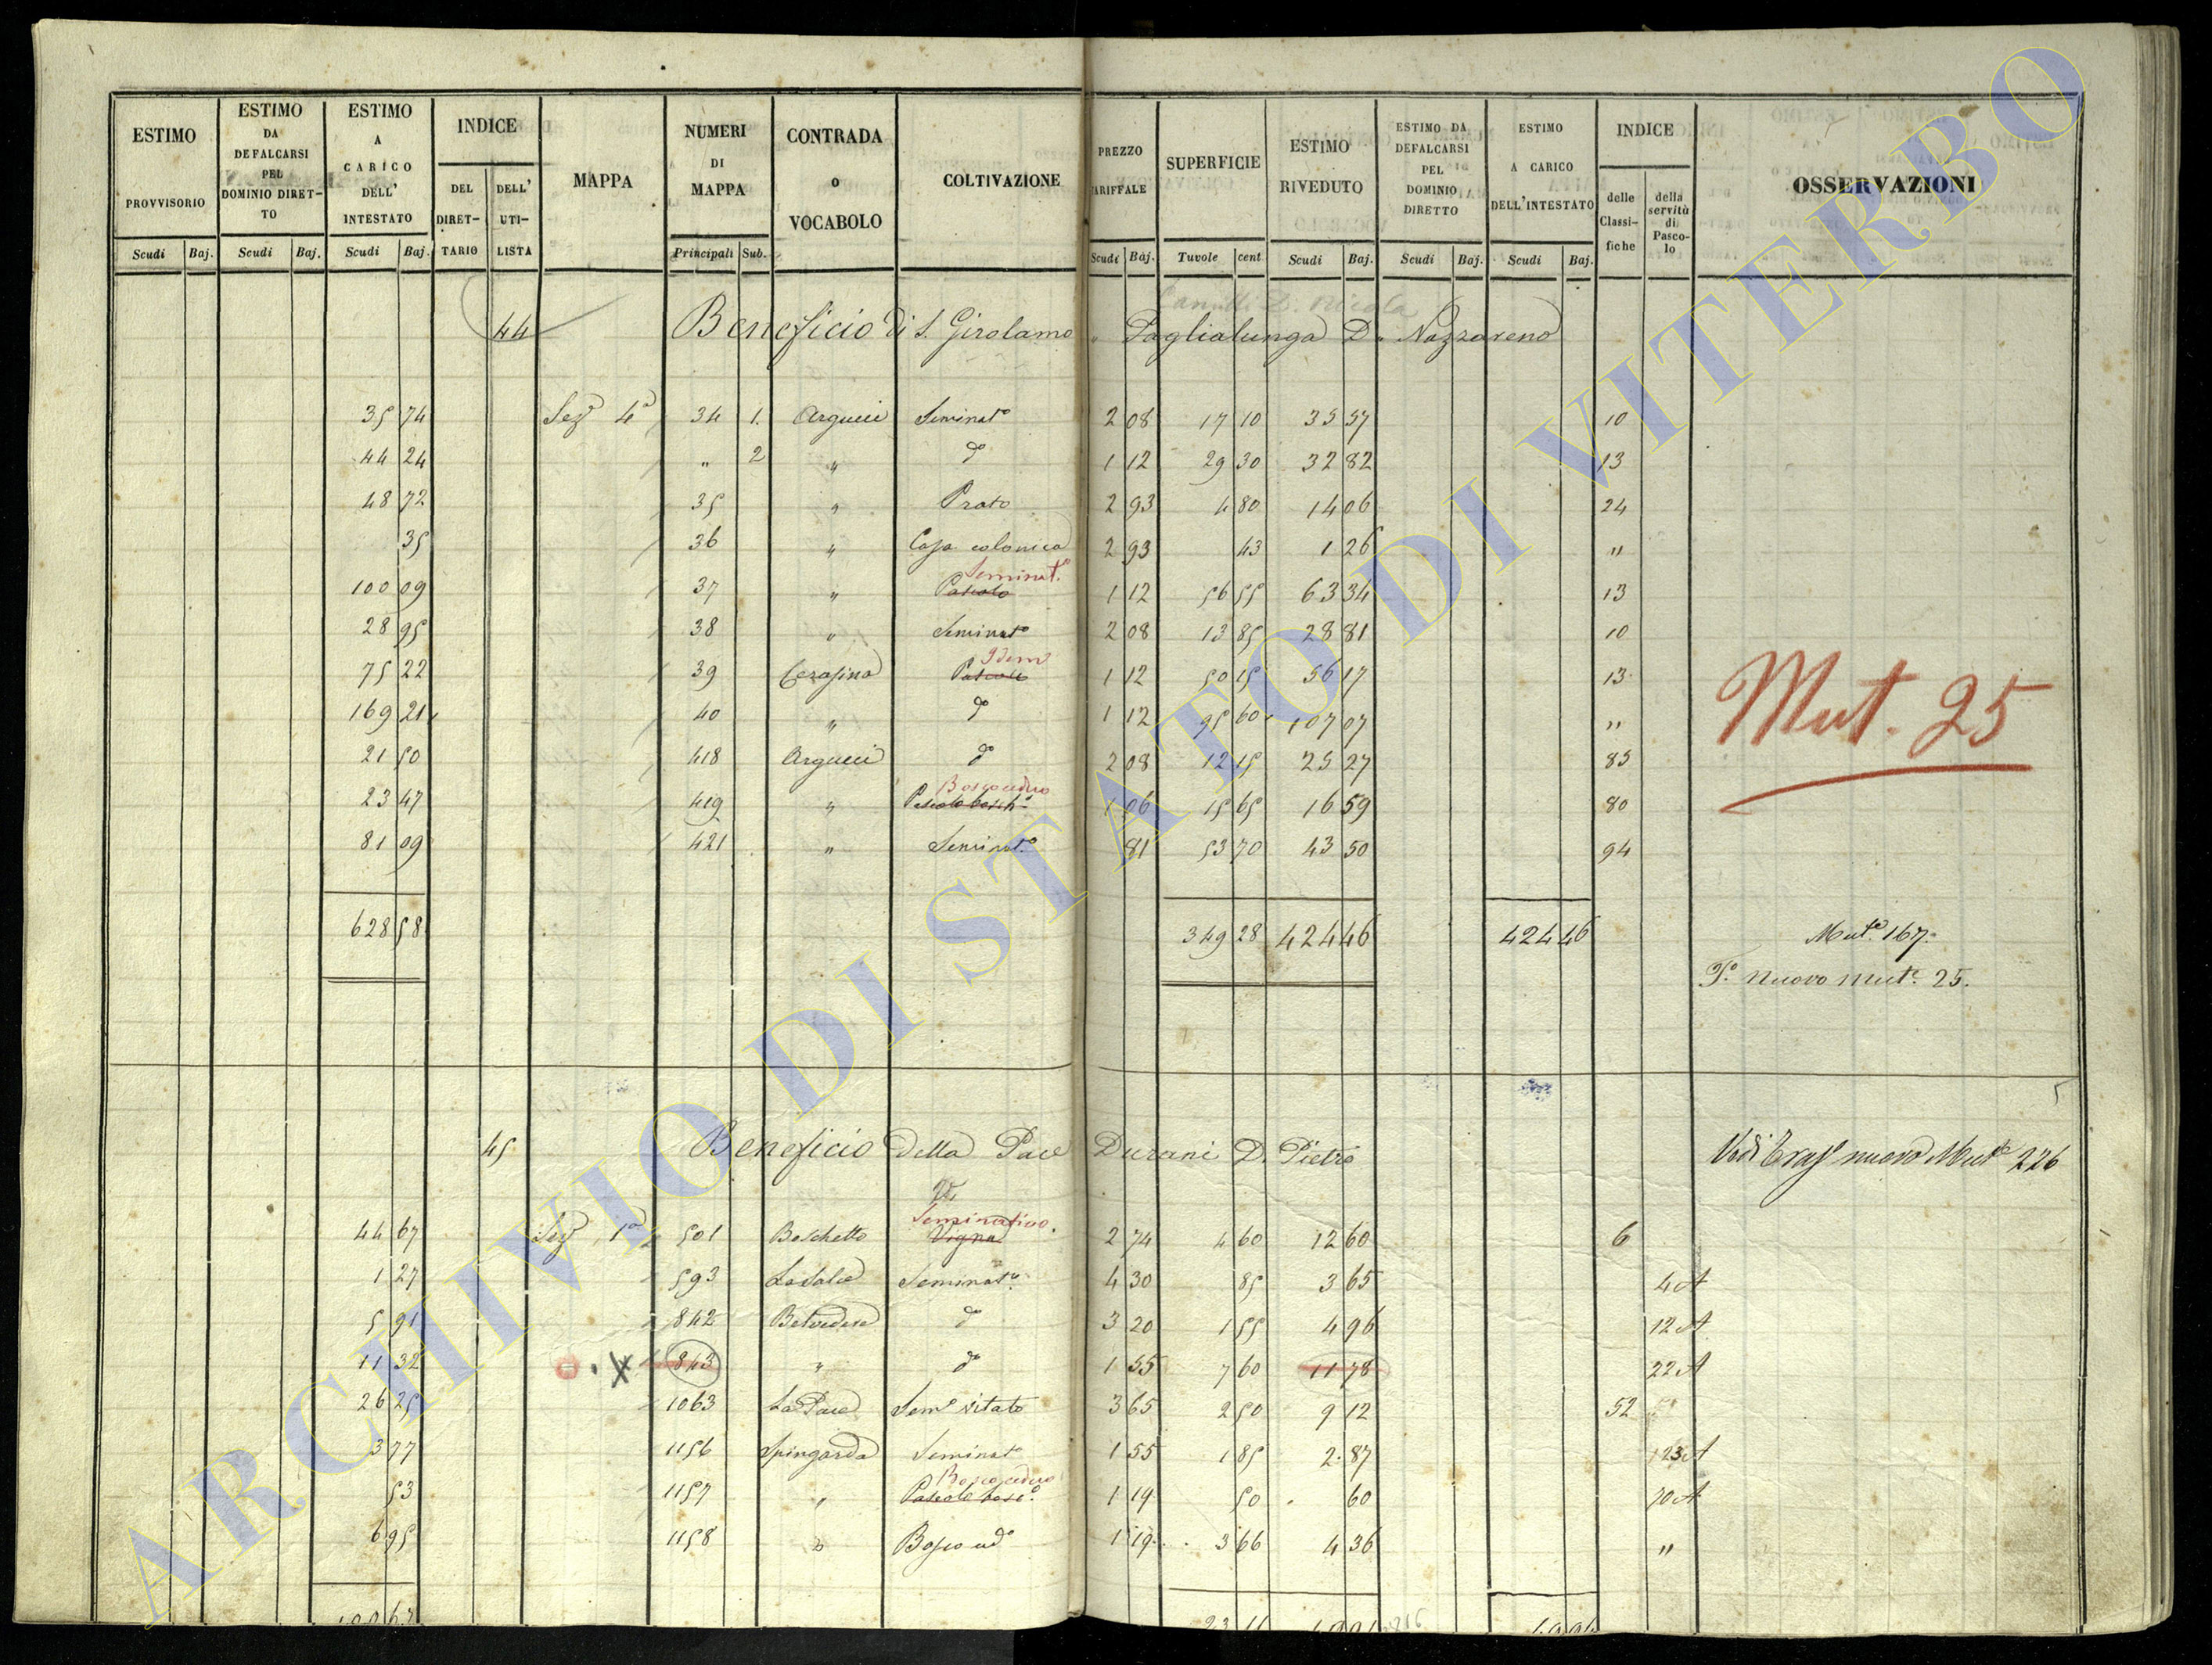 ESTIMO PROVVISORIO Scudi Baj.
ESTIMO DA DEFALCARSI PEL DOMINIO DIRETTO Scudi Baj.
ESTIMO A CARICO DELL' INTESTATO Scudi Baj.
INDICE DEL DIRETTARIO DELL' UTILISTA
MAPPA
NUMERI DI MAPPA Principali Sub.
CONTRADA o VOCABOLO
COLTIVAZIONE
PREZZO TARIFFALE Scudi Baj.
SUPERFICIE Tavole cent
ESTIMO RIVEDUTO Scudi Baj.
ESTIMO DA DEFALCARSI PEL DOMINIO DIRETTO Scudi Baj.
ESTIMO A CARICO DELL'INTESTATO Scudi Baj.
INDICE delle Classifiche della servitù di Pascolo
OSSERVAZIONI
D. Nicola
44 Beneficio di S. Girolamo " Paglialunga D. Nazzareno
35 74 Seze 4a 34 1. Argueci Seminato 2 08 17 10 35 57 10
44 24 " 2 " do 1 12 29 30 32 82 13
48 72 35 " Prato 2 93 4 80 14 06 24
35 36 " Casa colonica 2 93 43 1 26 "
Seminato
100 09 37 " Pascolo 1 12 56 55 63 34 13
28 95 38 " Seminato 2 08 13 85 28 81 10
Idem
75 22 39 Cerasino Pascolo 1 12 50 15 56 17 13
169 21 40 " do 1 12 95 60 107 07 "
21 50 418 Argueci do 2 08 12 15 25 27 83
Bosco ceduo
23 47 419 " Pascolo bosch. 1 06 15 65 16 59 80
81 09 421 " Seminato 81 53 70 43 50 94
Mut. 25
628 58 349 28 424 46 424 46 Mut. 167.
T. nuovo Mut. 25.
45 Beneficio della Pace Durani D. Pietro Vedi Trasp nuovo Mut. 226
Seminativo.
44 67 Sez 1a 501 Boschetto Vigna 2 74 4 60 12 60 6
1 27 593 Seminato 4 30 85 3 65 4 A
5 91 842 Belvedere do 3 20 1 55 4 96 12 A
11 32 843 " do 1 55 7 60 11 78 22 A
26 25 1063 La Pace Sem. vitato 3 65 2 50 9 12 52
3 77 1156 Spingarda Seminato 1 55 1 85 2 87 23 A
Bosco ceduo
53 1157 " Pascolo bosc. 1 19 50 60 70 A
6 95 1158 " Bosco ced. 1 19 3 66 4 36 "
ARCHIVIO DI STATO DI VITERBO